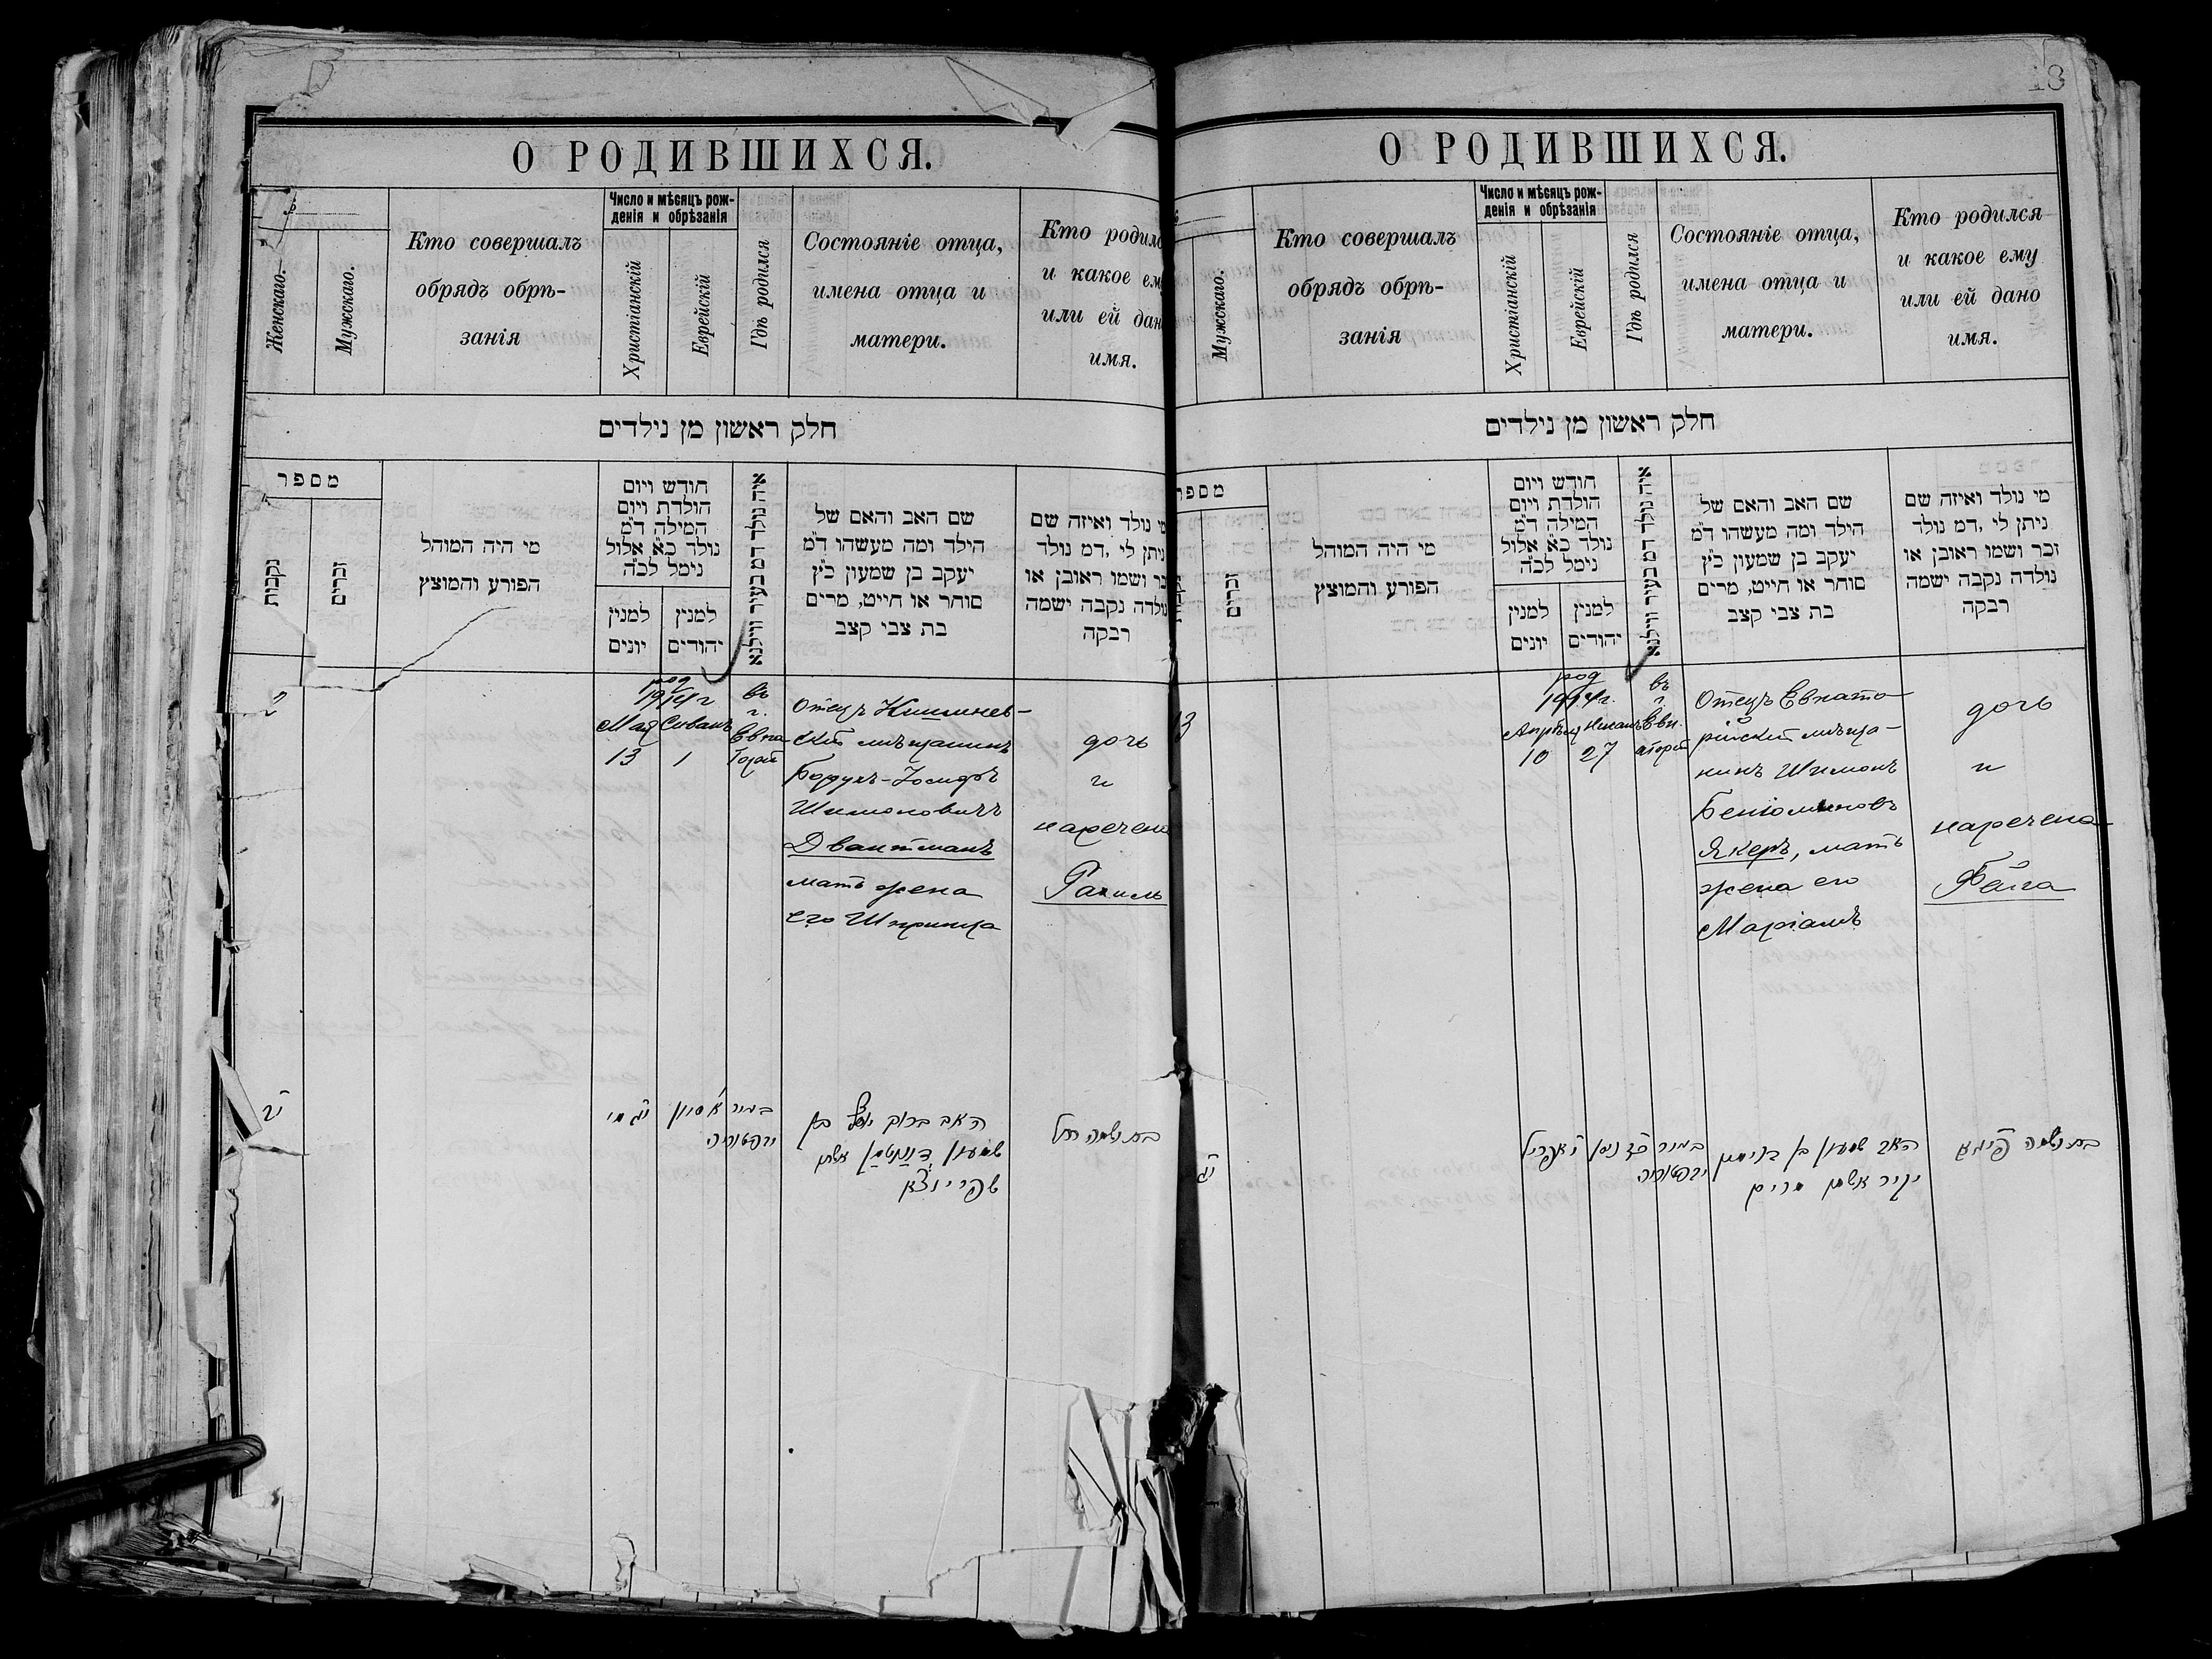 О РОДИВШИХСЯ.
Женскаго.
Мужскаго.
Кто совершалъ
обрядъ обрѣ-
занія
Число и мѣсяцъ рож-
денія и обрѣзанія
Христіанскій
Еврейскій
Гдѣ родился
Состояніе отца,
имена отца и
матери.
Кто родил
и какое ем
или ей дан
имя.
חלק ראשון מן נילדים
מספר
נקבות
זכרים
מי היה המוהל
הפורע והמוצץ
חודש ויום
הולדת ויום
המילה ד״מ
נולד כ״א אלול
נימל לכ״ה
למנין
יונים
למנין
יהודים
איה נולד דמ בעיר ווילנא
שם האב והאם של
הילד ומה מעשהו ד״מ
יעקב בן שמעון כ״ץ
סוחר או חייט, מרים
בת צבי קצב
מי נולד ואיזה שם
ניתן לי ,דמ נולד
זכר ושמו ראובן או
נולדה נקבה ישמה
רבקה
род
1914 г
Мая Сиванъ
13 1
въ
г.
Евпа
торіи
Отецъ Кишинев-
скій мѣщанинъ
Борухъ-Іосифъ
Шимоновичъ
Двантманъ
мать жена
его Шпринца
дочь
и
наречена
Рахиль
י״ג מי
א סיון
בעיר
יופטוריה
האב ברוך יוסף בן
שמעון דוואנטמאן אשתו
שפרינצא
בת ושמה רחל
18
О РОДИВШИХСЯ.
Мужскаго.
Кто совершалъ
обрядъ обрѣ-
занія
Число и мѣсяцъ рож-
денія и обрѣзанія
Христіанскій
Еврейскій
Гдѣ родился
Состояніе отца,
имена отца и
матери.
Кто родился
и какое ему
или ей дано
имя.
חלק ראשון מן נילדים
מספר
זכרים
מי היה המוהל
הפורע והמוצץ
חודש ויום
הולדת ויום
המילה ד״מ
נולד כ״א אלול
נימל לכ״ה
למנין
יונים
למנין
יהודים
איה נולד דמ בעיר ווילנא
שם האב והאם של
הילד ומה מעשהו ד״מ
יעקב בן שמעון כ״ץ
סוחר או חייט, מרים
בת צבי קצב
מי נולד ואיזה שם
ניתן לי ,דמ נולד
זכר ושמו ראובן או
נולדה נקבה ישמה
רבקה
13
род
1914 г.
Апрѣля Нисанъ
10 27
въ
г.
Евп.
аторіи
Отецъ Евпато-
рійскій мѣща-
нинъ Шимонъ
Беніоминовъ
Якеръ, мать
жена его
Маріамъ
дочь
и
наречена
Фейга
י״ג
י אפריל
ניסן
בעיר
יופטוריה
האב שמעון בן בנימין
יקיר אשתו מרים
בת ושמה פייגא